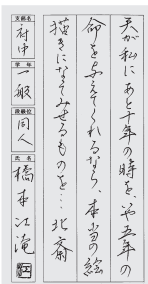 天が私にあと十年の時を、いや五年の
命を与えてくれるなら、本当の絵
描きになってみせるものを… 北斎
支部名
府中
学年
一般
段級位
同人
氏名
橋本江滝